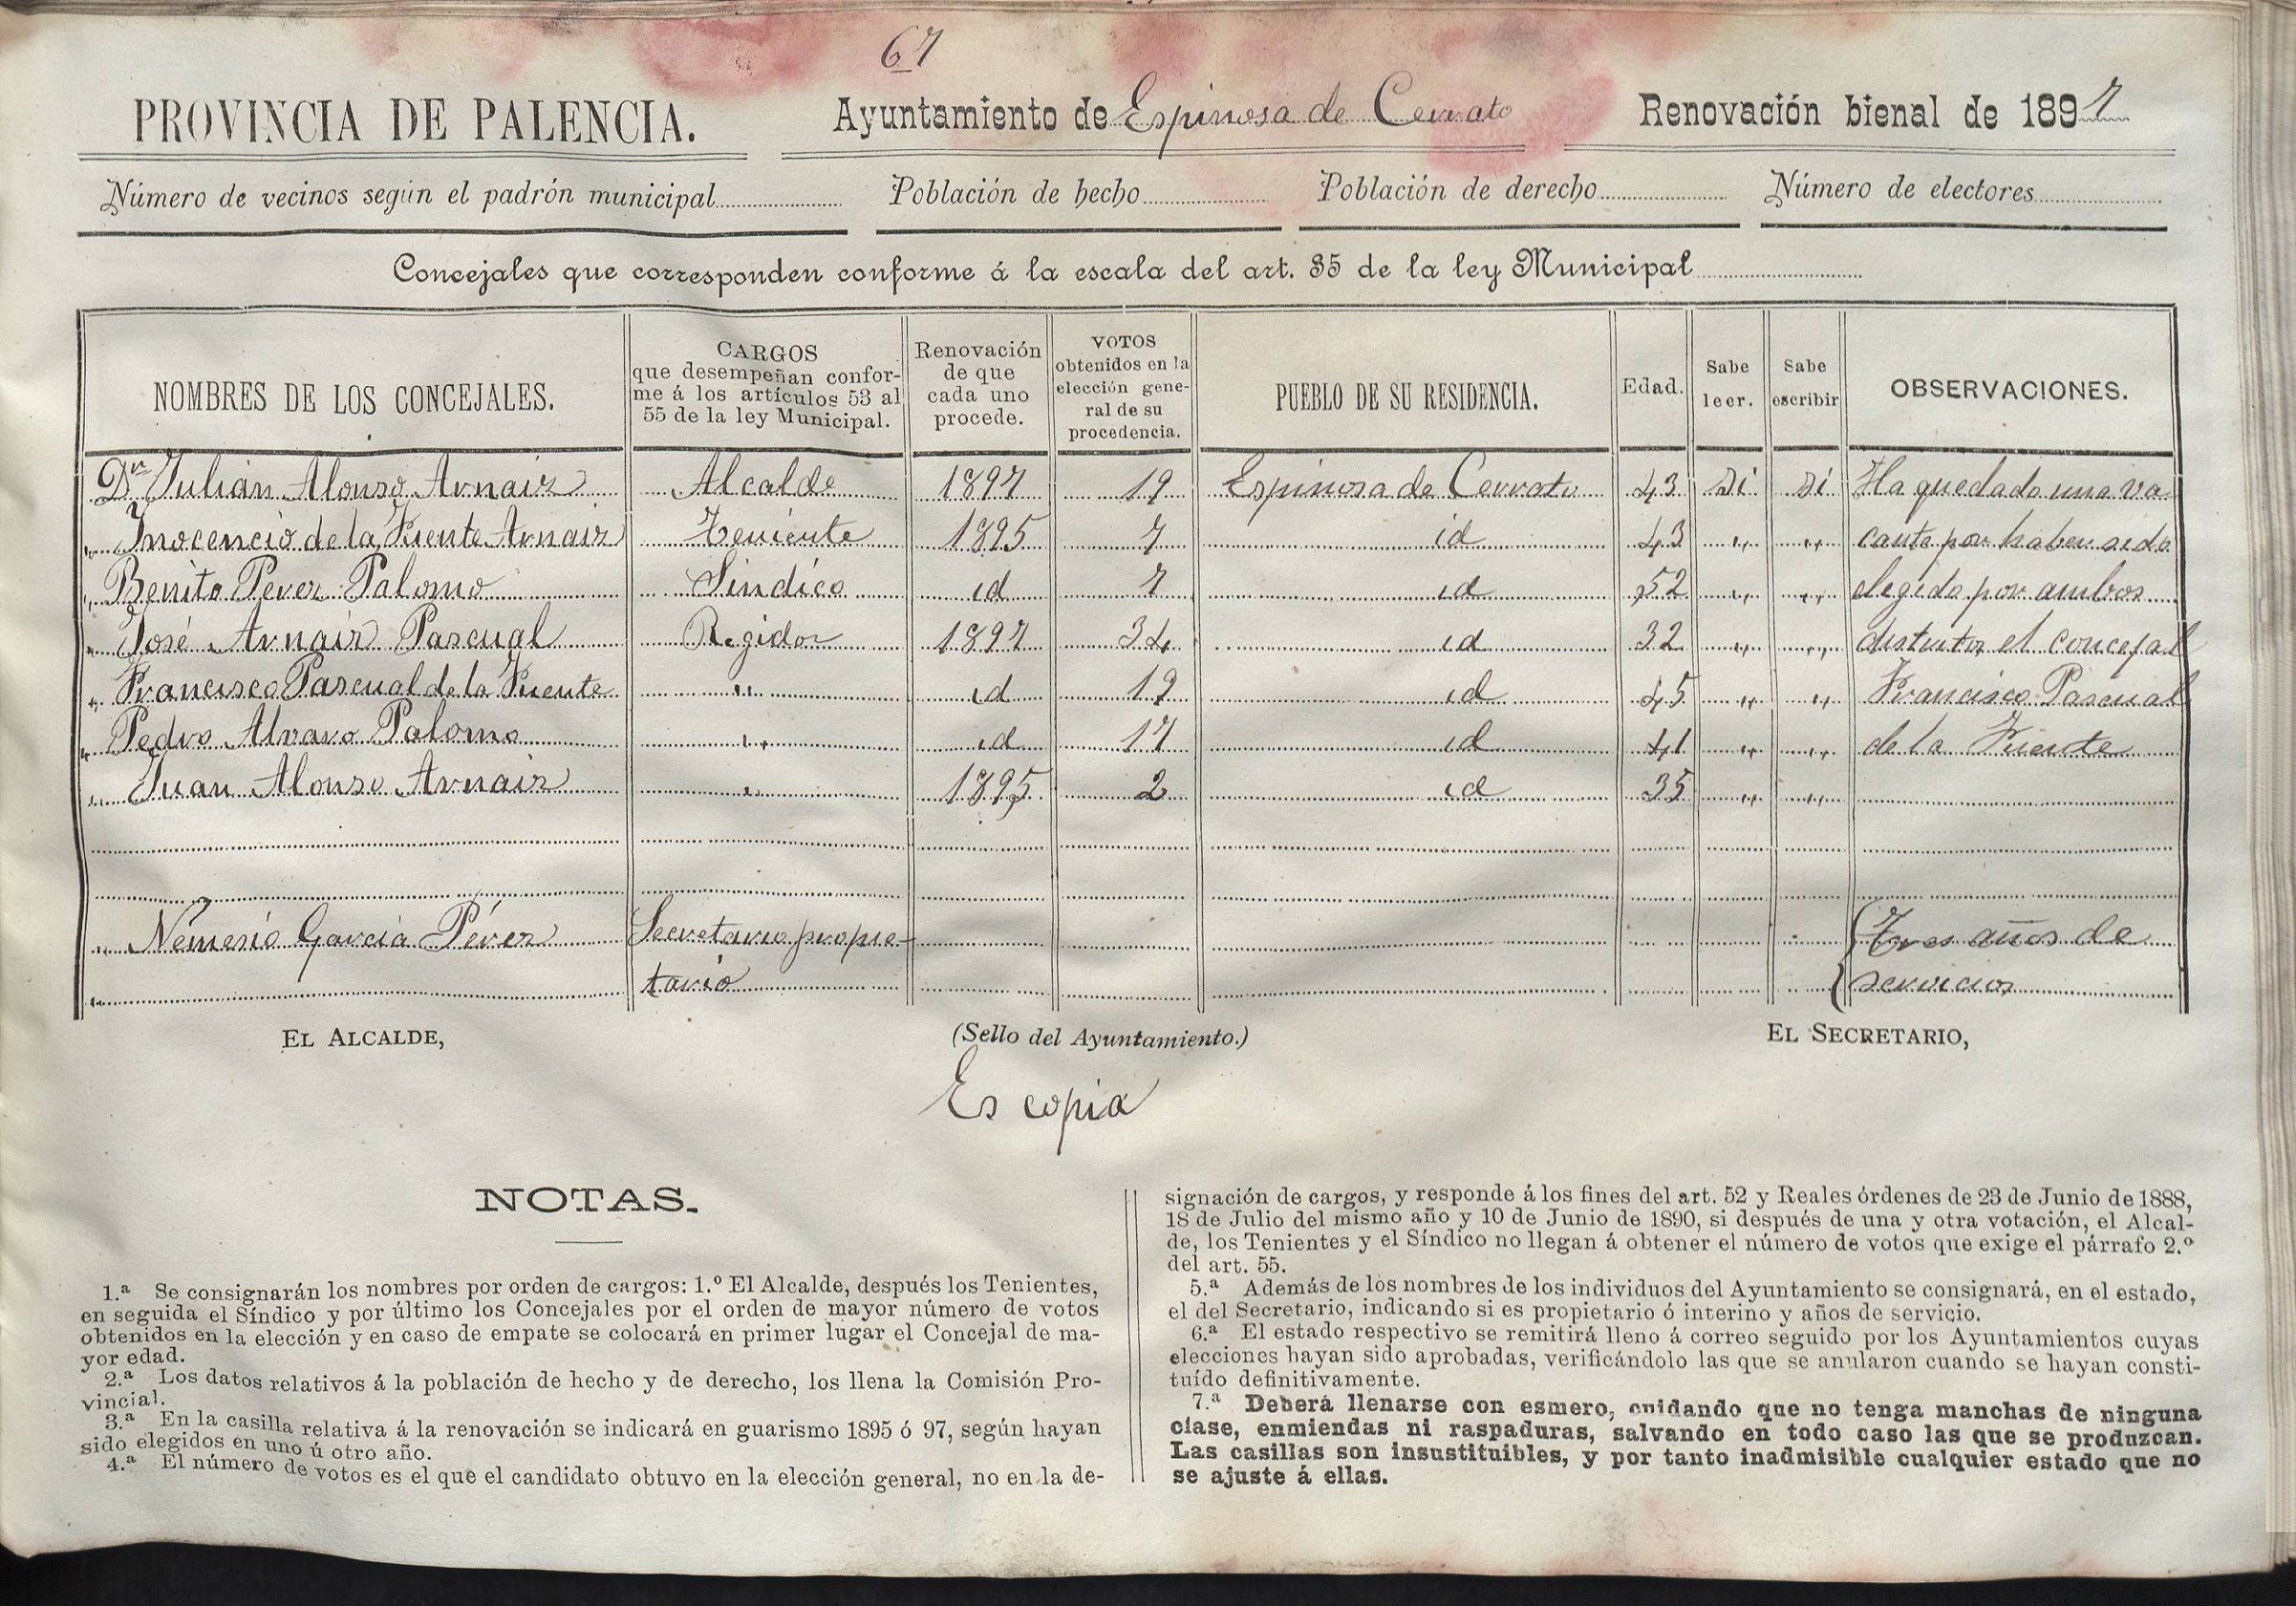 67
PROVINCIA DE PALENCIA. Ayuntamiento de Espinosa de Cerrato Renovación bienal de 1897
Número de vecinos según el padrón municipal Población de hecho Población de derecho Número de electores
Concejales que corresponden conforme á la escala del art. 35 de la ley Municipal
NOMBRES DE LOS CONCEJALES. CARGOS que desempeñan confor-me á los artículos 53 al 55 de la ley Municipal. Renovación de que cada uno procede. VOTOS obtenidos en la elección gene-ral de su procedencia. PUEBLO DE SU RESIDENCIA. Edad. Sabe leer. Sabe escribir OBSERVACIONES.
Dn Julián Alonso Arnaiz Alcalde 1897 19 Espinosa de Cerrato 43 Si Si Ha quedado una va-
„ Inocencio de la Fuente Arnaiz Teniente 1895 7 id 43 „ „ cante por haber sido
„ Benito Perez Palomo Sindico id 7 id 52 „ „ elegido por ambos
„ José Arnaiz Pascual Regidor 1897 34 id 32 „ „ distritos el concejal
„ Francisco Pascual de la Fuente „ id 19 id 45 „ „ Francisco Pascual
„ Pedro Alvaro Palomo „ id 17 id 41 „ „ de la Fuente
„ Juan Alonso Arnaiz „ 1895 2 id 35 „ „
„ Nemesio García Pérez Secretario propie- Tres años de
„ tario servicios
EL ALCALDE, (Sello del Ayuntamiento.) EL SECRETARIO,
Es copia
NOTAS.
1.ª Se consignarán los nombres por orden de cargos: 1.º El Alcalde, después los Tenientes,
en seguida el Síndico y por último los Concejales por el orden de mayor número de votos
obtenidos en la elección y en caso de empate se colocará en primer lugar el Concejal de ma-
yor edad.
2.ª Los datos relativos á la población de hecho y de derecho, los llena la Comisión Pro-
vincial.
3.ª En la casilla relativa á la renovación se indicará en guarismo 1895 ó 97, según hayan
sido elegidos en uno ú otro año.
4.ª El número de votos es el que el candidato obtuvo en la elección general, no en la de-
signación de cargos, y responde á los fines del art. 52 y Reales órdenes de 23 de Junio de 1888,
18 de Julio del mismo año y 10 de Junio de 1890, si después de una y otra votación, el Alcal-
de, los Tenientes y el Síndico no llegan á obtener el número de votos que exige el párrafo 2.º
del art. 55.
5.ª Además de los nombres de los individuos del Ayuntamiento se consignará, en el estado,
el del Secretario, indicando si es propietario ó interino y años de servicio.
6.ª El estado respectivo se remitirá lleno á correo seguido por los Ayuntamientos cuyas
elecciones hayan sido aprobadas, verificándolo las que se anularon cuando se hayan consti-
tuído definitivamente.
7.ª Deberá llenarse con esmero, cuidando que no tenga manchas de ninguna
clase, enmiendas ni raspaduras, salvando en todo caso las que se produzcan.
Las casillas son insustituibles, y por tanto inadmisible cualquier estado que no
se ajuste á ellas.